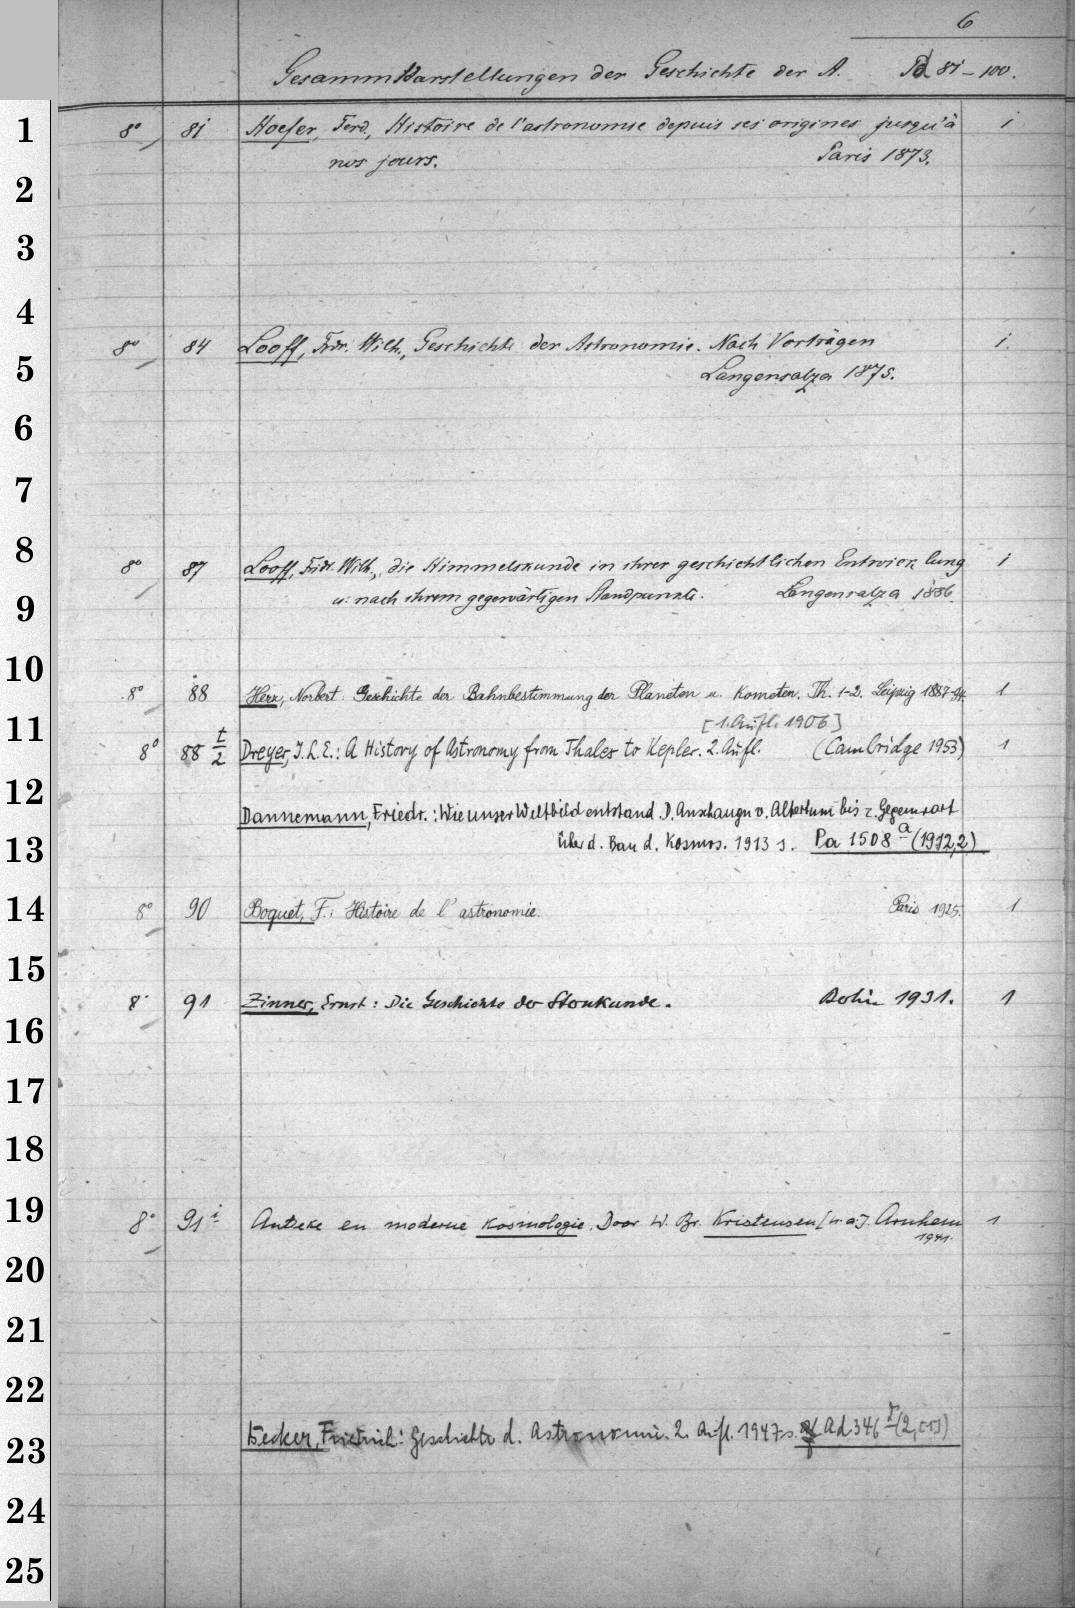 6
Gesammtdarstellungen der Geschichte der A. Pd 81-100.
1 8° 81 Hoefer, Ferd., Histoire de l'astronomie depuis ses origines jusqu'à 1
nos jours. Paris 1873.
2
3
4
8° 84 Looff, Frdr. Wilh., Geschichte der Astronomie. Nach Vorträgen 1.
5 Langensalza 1875.
6
7
8
8° 87 Looff, Fridr. Wilh., die Himmelskunde in ihrer geschichtlichen Entwicklung 1
9 u. nach ihrem gegenwärtigen Standpunkte. Langensalza 1886.
10
8° 88 Herz, Norbert. Geschichte der Bahnbestimmung der Planeten u. Kometen. Th. 1-2. Leipzig 1887-94. 1
11 [1. Aufl. 1906]
8° 88 t/2 Dreyer, J.L.E.: A History of Astronomy from Thales to Kepler. 2. Aufl. (Cambridge 1953) 1
12
Dannemann, Friedr.: Wie unser Weltbild entstand. D. Anschaugn v. Altertum bis z. Gegenwart
13 über d. Bau d. Kosmos. 1913 s. Pa 1508 a (1912,2)
14 8° 90 Boquet, F.: Histoire de l'astronomie. Paris 1925. 1
15
8° 91 Zinner, Ernst: Die Geschichte der Sternkunde. Berlin 1931. 1
16
17
18
19 8° 91 i Antieke en moderne kosmologie. Door W. Br. Kristensen [u.a.]. Arnhem 1
1941.
20
21
22
23 Becker, Friedrich: Geschichte d. Astronomie. 2. Aufl. 1947 s. Ad 346 r (2,
24
25